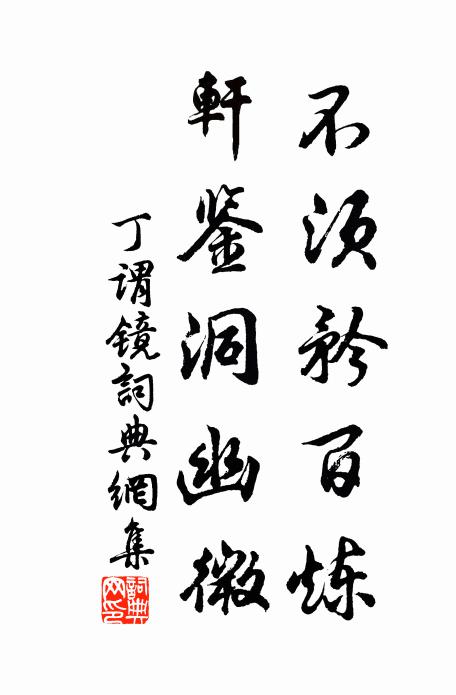 不须矜百炼
軒鉴洞幽微
丁謂鏡詞典網集
詞典网印